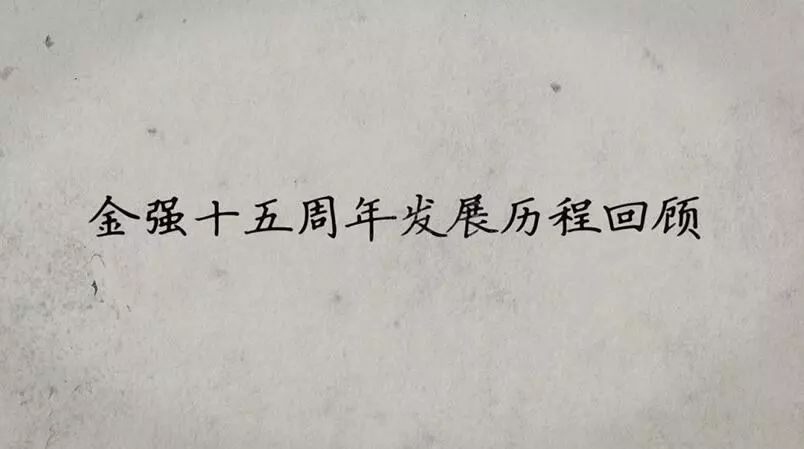 金强十五周年发展历程回顾